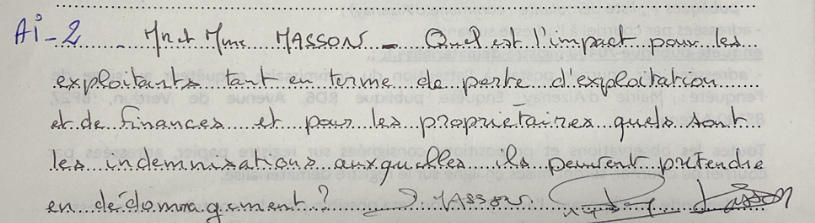 Ai-2 - Mr et Mme MASSON - Quel est l'impact pour les
exploitants tant en terme de perte d'exploitation
et de finances et pour les propriétaires quels sont
les indemnisations auxquelles ils peuvent prétendre
en dédommagement? J MASSON. Masson